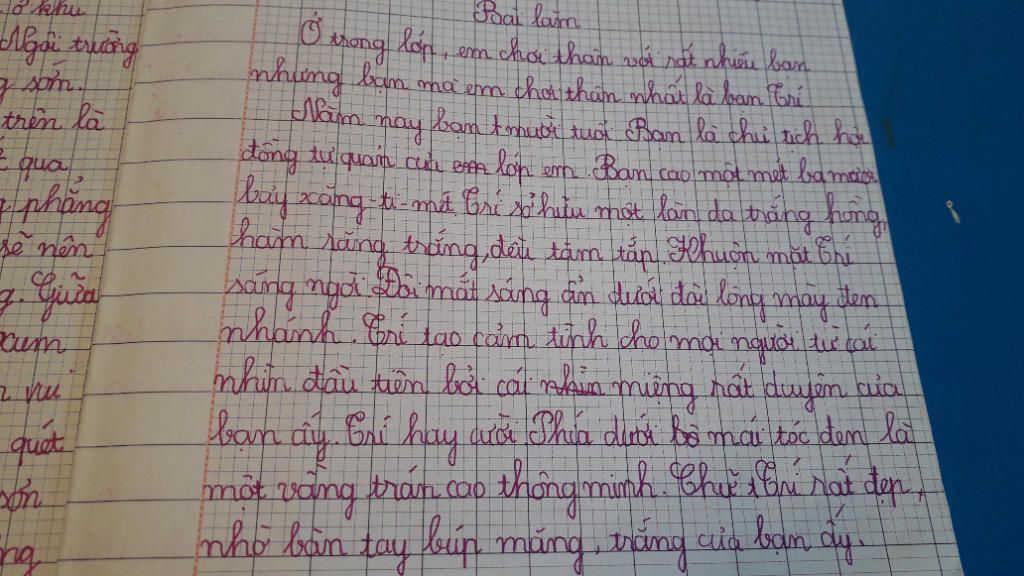 ở khu
Ngôi trường
g sớm.
trên là
qua
g phẳng
sẽ nên
g. Giữa
xum
vui
quét
sơn
ng
Bài làm
Ở trong lớp, em chơi thân với rất nhiều bạn
nhưng bạn mà em chơi thân nhất là bạn Trí
Năm nay bạn mười tuổi Bạn là chủ tịch hội
đồng tự quản của em lớp em. Bạn cao một mét ba mươi
bảy xăng-ti-mét Trí sở hữu một làn da trắng hồng,
hàm răng trắng, đều tăm tắp. Khuôn mặt Trí
sáng ngời. Đôi mắt sáng ẩn dưới đôi lông mày đen
nhánh. Trí tạo cảm tình cho mọi người từ cái
nhìn đầu tiên bởi cái nhìn miệng rất duyên của
bạn ấy. Trí hay cười Phía dưới bộ mái tóc đen là
một vầng trán cao thông minh. Chữ Trí rất đẹp,
nhờ bàn tay búp măng, trắng của bạn ấy.